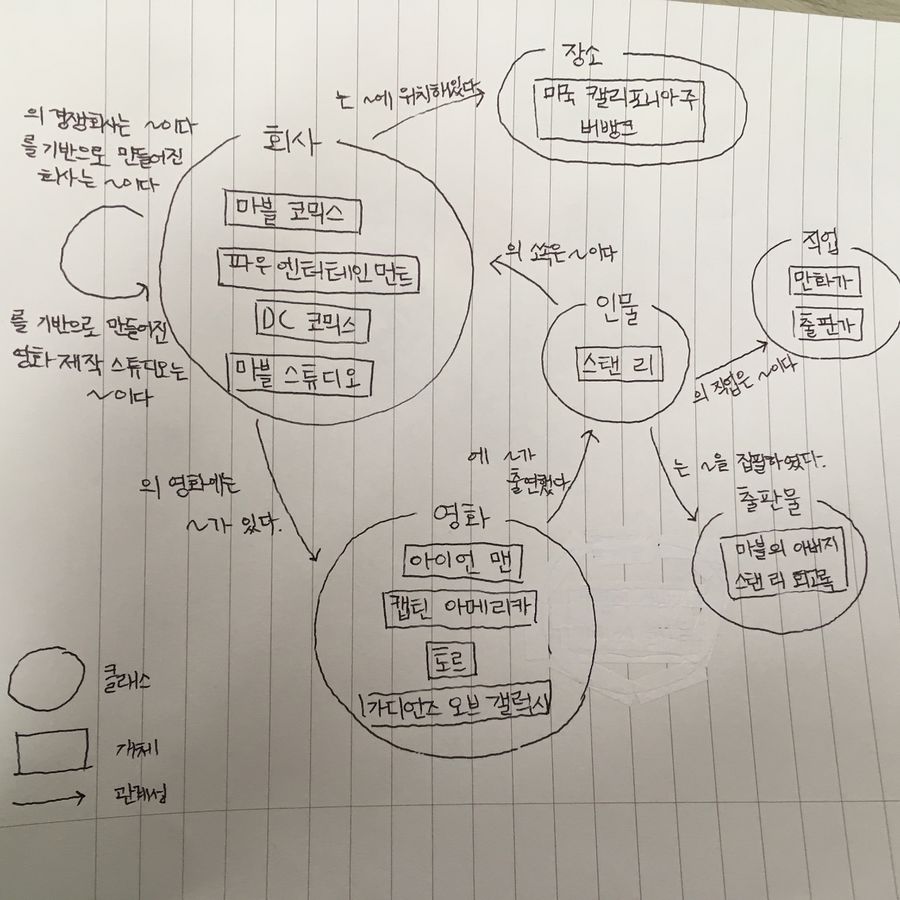 장소
미국 캘리포니아주
버뱅크
는 ~에 위치해있다.
의 경쟁회사는 ~이다
를 기반으로 만들어진
회사는 ~이다
회사
마블 코믹스
파우 엔터테인먼트
DC 코믹스
마블 스튜디오
를 기반으로 만들어진
영화 제작 스튜디오는
~이다
의 소속은 ~이다
인물
스탠 리
직업
만화가
출판가
의 직업은 ~이다
의 영화에는
~가 있다.
에 ~가
출연했다
는 ~을 집필하였다.
출판물
마블의 아버지
스탠 리 회고록
영화
아이언 맨
캡틴 아메리카
토르
가디언즈 오브 갤럭시
클래스
개체
관계성